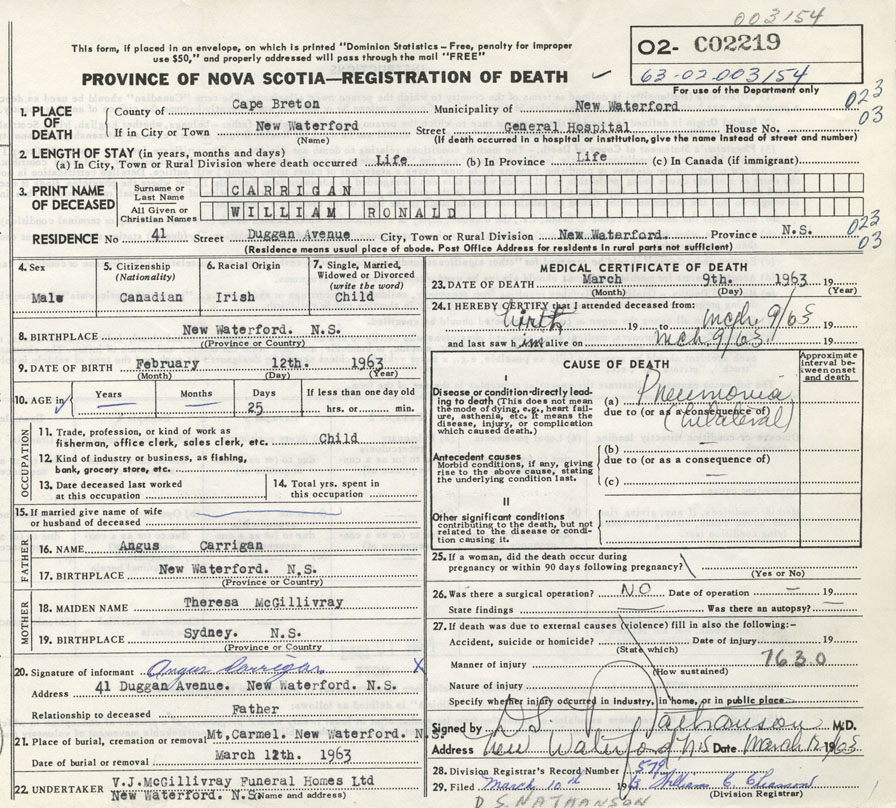 003154
This form, if placed in an envelope, on which is printed "Dominion Statistics – Free, penalty for improper
use $50," and properly addressed will pass through the mail "FREE"
O2- C02219
63-02-003154
PROVINCE OF NOVA SCOTIA—REGISTRATION OF DEATH
For use of the Department only
023
03
1. PLACE OF DEATH
County of Cape Breton Municipality of New Waterford
If in City or Town New Waterford Street General Hospital House No.
(Name) (If death occurred in a hospital or institution, give the name instead of street and number)
2. LENGTH OF STAY (in years, months and days)
(a) In City, Town or Rural Division where death occurred Life (b) In Province Life (c) In Canada (if immigrant)
3. PRINT NAME OF DECEASED
Surname or Last Name CARRIGAN
All Given or Christian Names WILLIAM RONALD
023
03
RESIDENCE No 41 Street Duggan Avenue City, Town or Rural Division New Waterford. Province N.S.
(Residence means usual place of abode. Post Office Address for residents in rural parts not sufficient)
4. Sex
Male
5. Citizenship
(Nationality)
Canadian
6. Racial Origin
Irish
7. Single, Married,
Widowed or Divorced
(write the word)
Child
8. BIRTHPLACE New Waterford. N.S.
(Province or Country)
9. DATE OF BIRTH February 12th. 1963
(Month) (Day) (Year)
10. AGE in
Years
Months
Days
25
If less than one day old
hrs. or min.
OCCUPATION
11. Trade, profession, or kind of work as
fisherman, office clerk, sales clerk, etc. Child
12. Kind of industry or business, as fishing,
bank, grocery store, etc.
13. Date deceased last worked
at this occupation
14. Total yrs. spent in
this occupation
15. If married give name of wife
or husband of deceased
FATHER
16. NAME Angus Carrigan
17. BIRTHPLACE New Waterford. N.S.
(Province or Country)
MOTHER
18. MAIDEN NAME Theresa McGillivray
19. BIRTHPLACE Sydney. N.S.
(Province or Country)
20. Signature of informant Angus Carrigan X
Address 41 Duggan Avenue. New Waterford. N.S.
Relationship to deceased Father
21. Place of burial, cremation or removal Mt,Carmel. New Waterford. N.S.
Date of burial or removal March 12th. 1963
22. UNDERTAKER V.J.McGillivray Funeral Homes Ltd
New Waterford. N.S. (Name and address)
MEDICAL CERTIFICATE OF DEATH
23. DATE OF DEATH March 9th. 1963 19
(Month) (Day) (Year)
24. I HEREBY CERTIFY that I attended deceased from:
birth 19 to mch 9/63 19
and last saw him alive on mch 9/63 19
CAUSE OF DEATH
Approximate
interval be-
tween onset
and death
I
Disease or condition directly lead-
ing to death (This does not mean
the mode of dying, e.g., heart fail-
ure, asthenia, etc. It means the
disease, injury, or complication
which caused death.)
(a) Pneumonia
due to (or as a consequence of)
(bilateral)
Antecedent causes
Morbid conditions, if any, giving
rise to the above cause, stating
the underlying condition last.
(b)
due to (or as a consequence of)
(c)
II
Other significant conditions
contributing to the death, but not
related to the disease or condi-
tion causing it.
25. If a woman, did the death occur during
pregnancy or within 90 days following pregnancy?
(Yes or No)
26. Was there a surgical operation? NO Date of operation 19
State findings Was there an autopsy?
27. If death was due to external causes (violence) fill in also the following:–
Accident, suicide or homicide? Date of injury 19
(State which)
Manner of injury 763 0
(How sustained)
Nature of injury
Specify whether injury occurred in industry, in home, or in public place
Signed by D S Nathanson M.D.
Address New Waterford NS Date March 12 1963
28. Division Registrar's Record Number 579
29. Filed March 10th 1963 William C
(Division Registrar)
D.S. NATHANSON